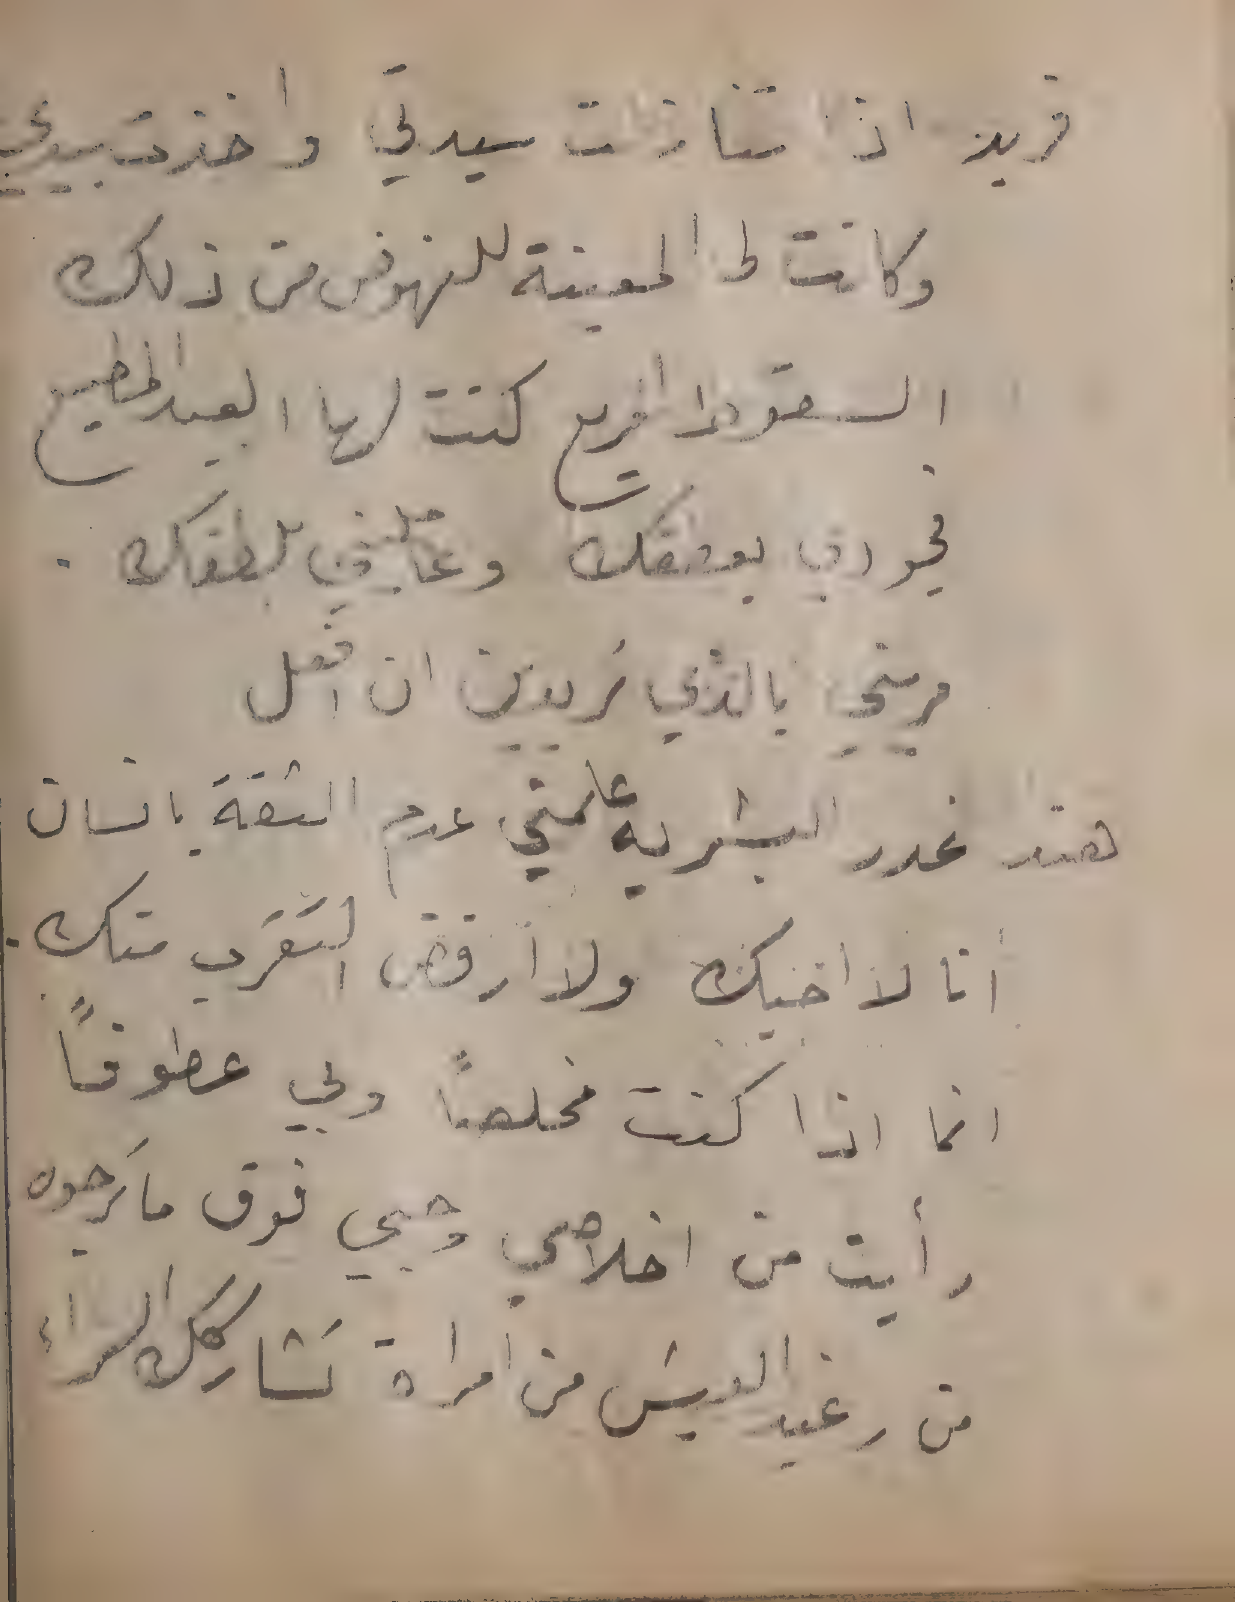 فريد اذا تنازلت سيدتي واخذت بيدي
وكانت لي المعينة للنهوض من ذلك
السقوط المريع كنت لها العبد المطيع
فجودي بعطفك وعامليني بلطفك .
مريني بالذي تريدين ان افعل
هند غدر البشرية علمتني عدم الثقة بانسان
أنا لا اخيبك ولا أرفض التقرب منك .
انما اذا كنت مخلصاً ولي عطوفاً
رأيت من اخلاصي وحبي فوق ما ترجوه
من رغيد العيش من امراة تشاركك السراء